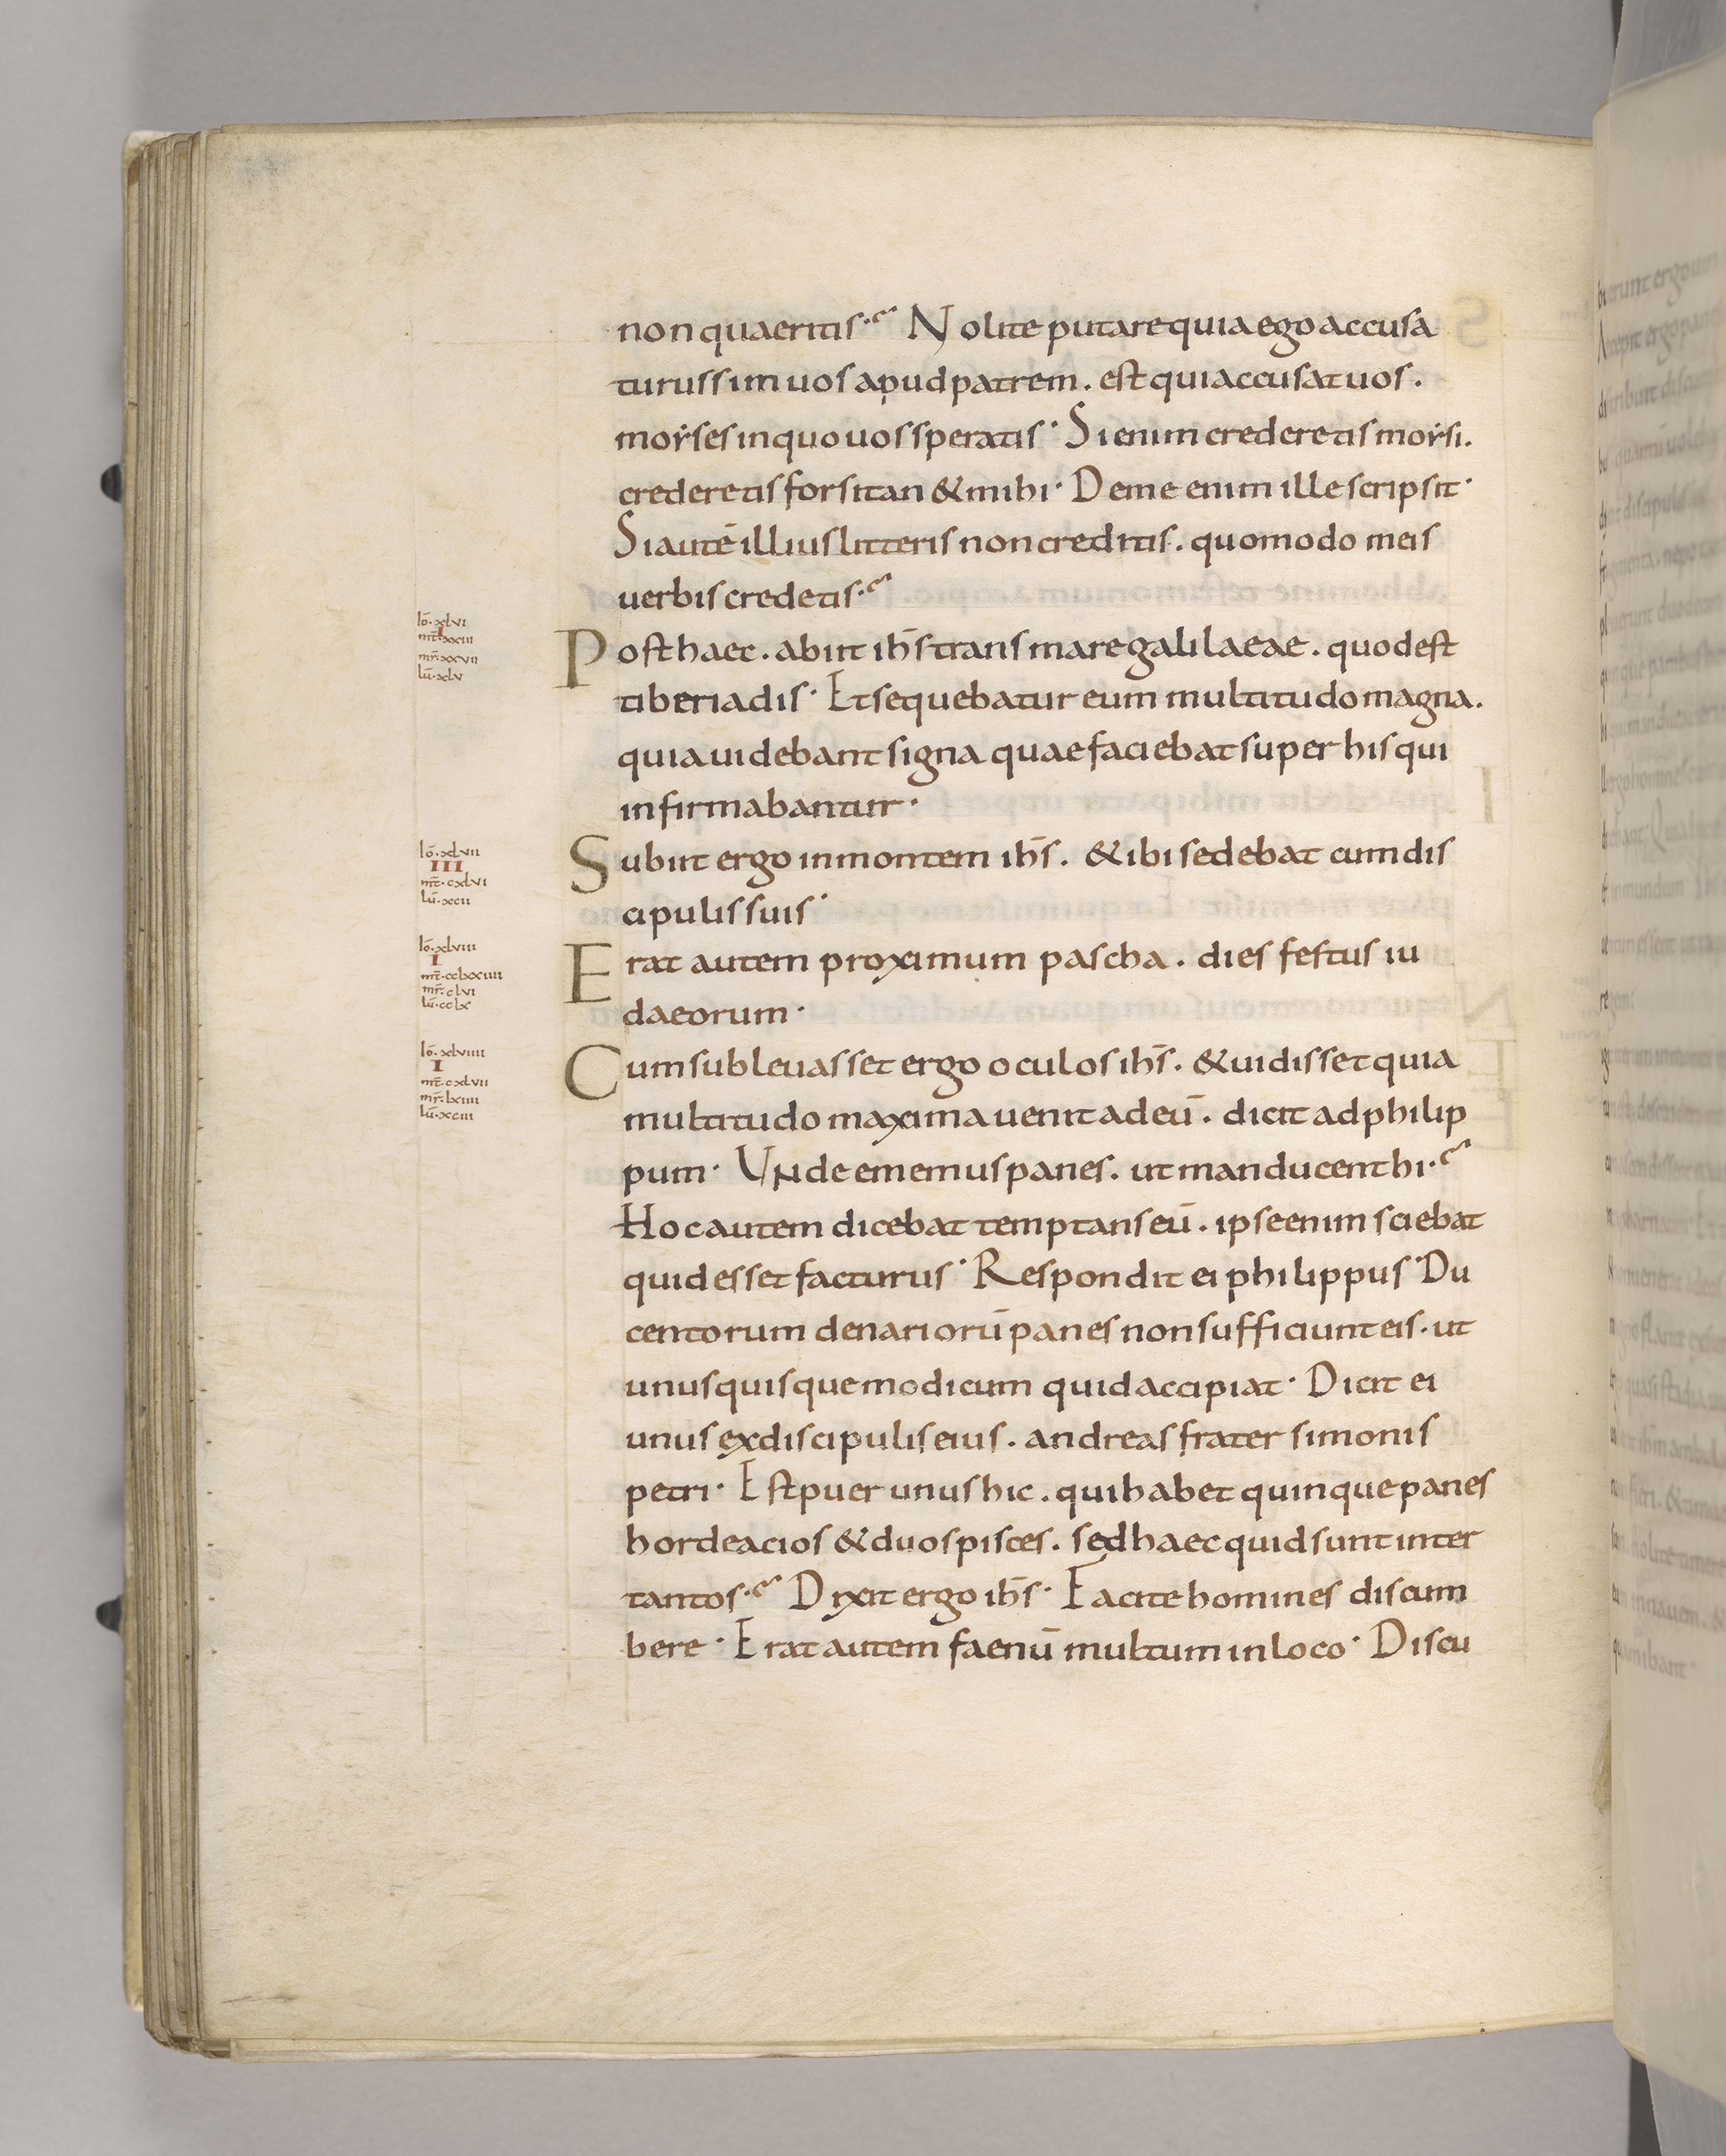 non quaeritis· Nolite putare quia ego accusa
turus sim uos apud patrem. est qui accusat uos.
moẏses in quo uos speratis· Si enim crederetis moẏsi.
crederetis forsitan & mihi· De me enim ille scripsit·
Si autē illius litteris non creditis. quomodo meis
uerbis credetis·
lō·xlvi
I
mt̄·xxiii
mr̄·xxvii
lū·xlv
Post haec. abiit ihs̄ trans mare galilaeae. quod est
tiberiadis· Et sequebatur eum multitudo magna.
quia uidebant signa quae faciebat super his qui
infirmabantur·
lō·xlvii
III
mt̄·cxlvi
lū·xcii
Subiit ergo in montem ihs̄. & ibi sedebat cum dis
cipulis suis·
lō·xlviii
I
mt̄·cclxxiiii
mr̄·clvi
lū·cclx
Erat autem proximum pascha. dies festus iu
daeorum·
lō·xlviiii
I
mt̄·cxlvii
mr̄·lxiiii
lū·xciii
Cum subleuasset ergo oculos ihs̄. & uidisset quia
multitudo maxima uenit ad eū. dicit ad philip
pum· Unde ememus panes. ut manducent hi·
Hoc autem dicebat temptans eū. ipse enim sciebat
quid esset facturus· Respondit ei philippus· Du
centorum denariorū panes non sufficiunt eis. ut
unusquisque modicum quid accipiat· Dicit ei
unus ex discipulis eius. andreas frater simonis
petri· Est puer unus hic. qui habet quinque panes
hordeacios & duos pisces. sed haec quid sunt inter
tantos· Dixit ergo ihs̄· Facite homines discum
bere· Erat autem faenū multum in loco· Discu